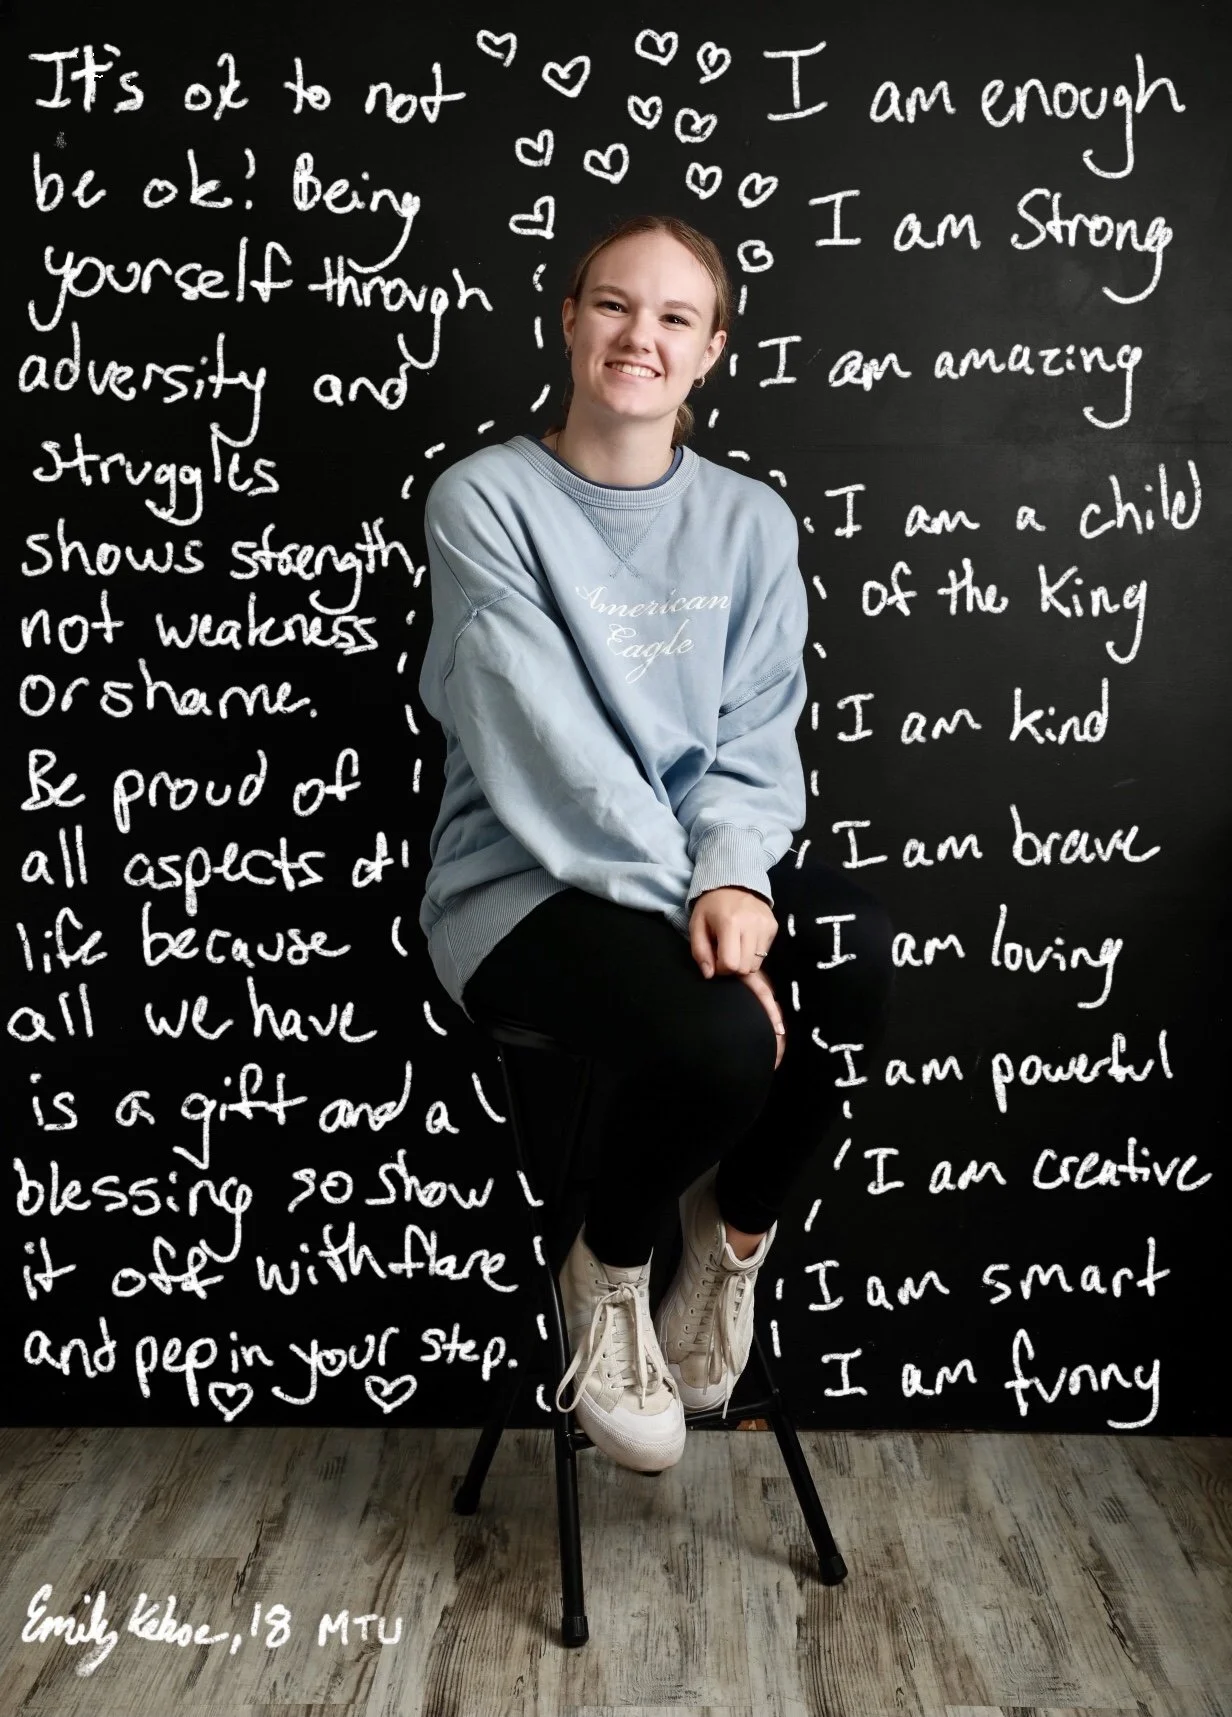 It's ok to not
be ok! Being
yourself through
adversity and
struggles
shows strength,
not weakness
or shame.
Be proud of
all aspects of
life because
all we have
is a gift and a
blessing so show
it off with flare
and pep in your step.
I am enough
I am Strong
I am amazing
I am a child
of the King
I am kind
I am brave
I am loving
I am powerful
I am creative
I am smart
I am funny
American
Eagle
Emily Kehoe, 18 MTU